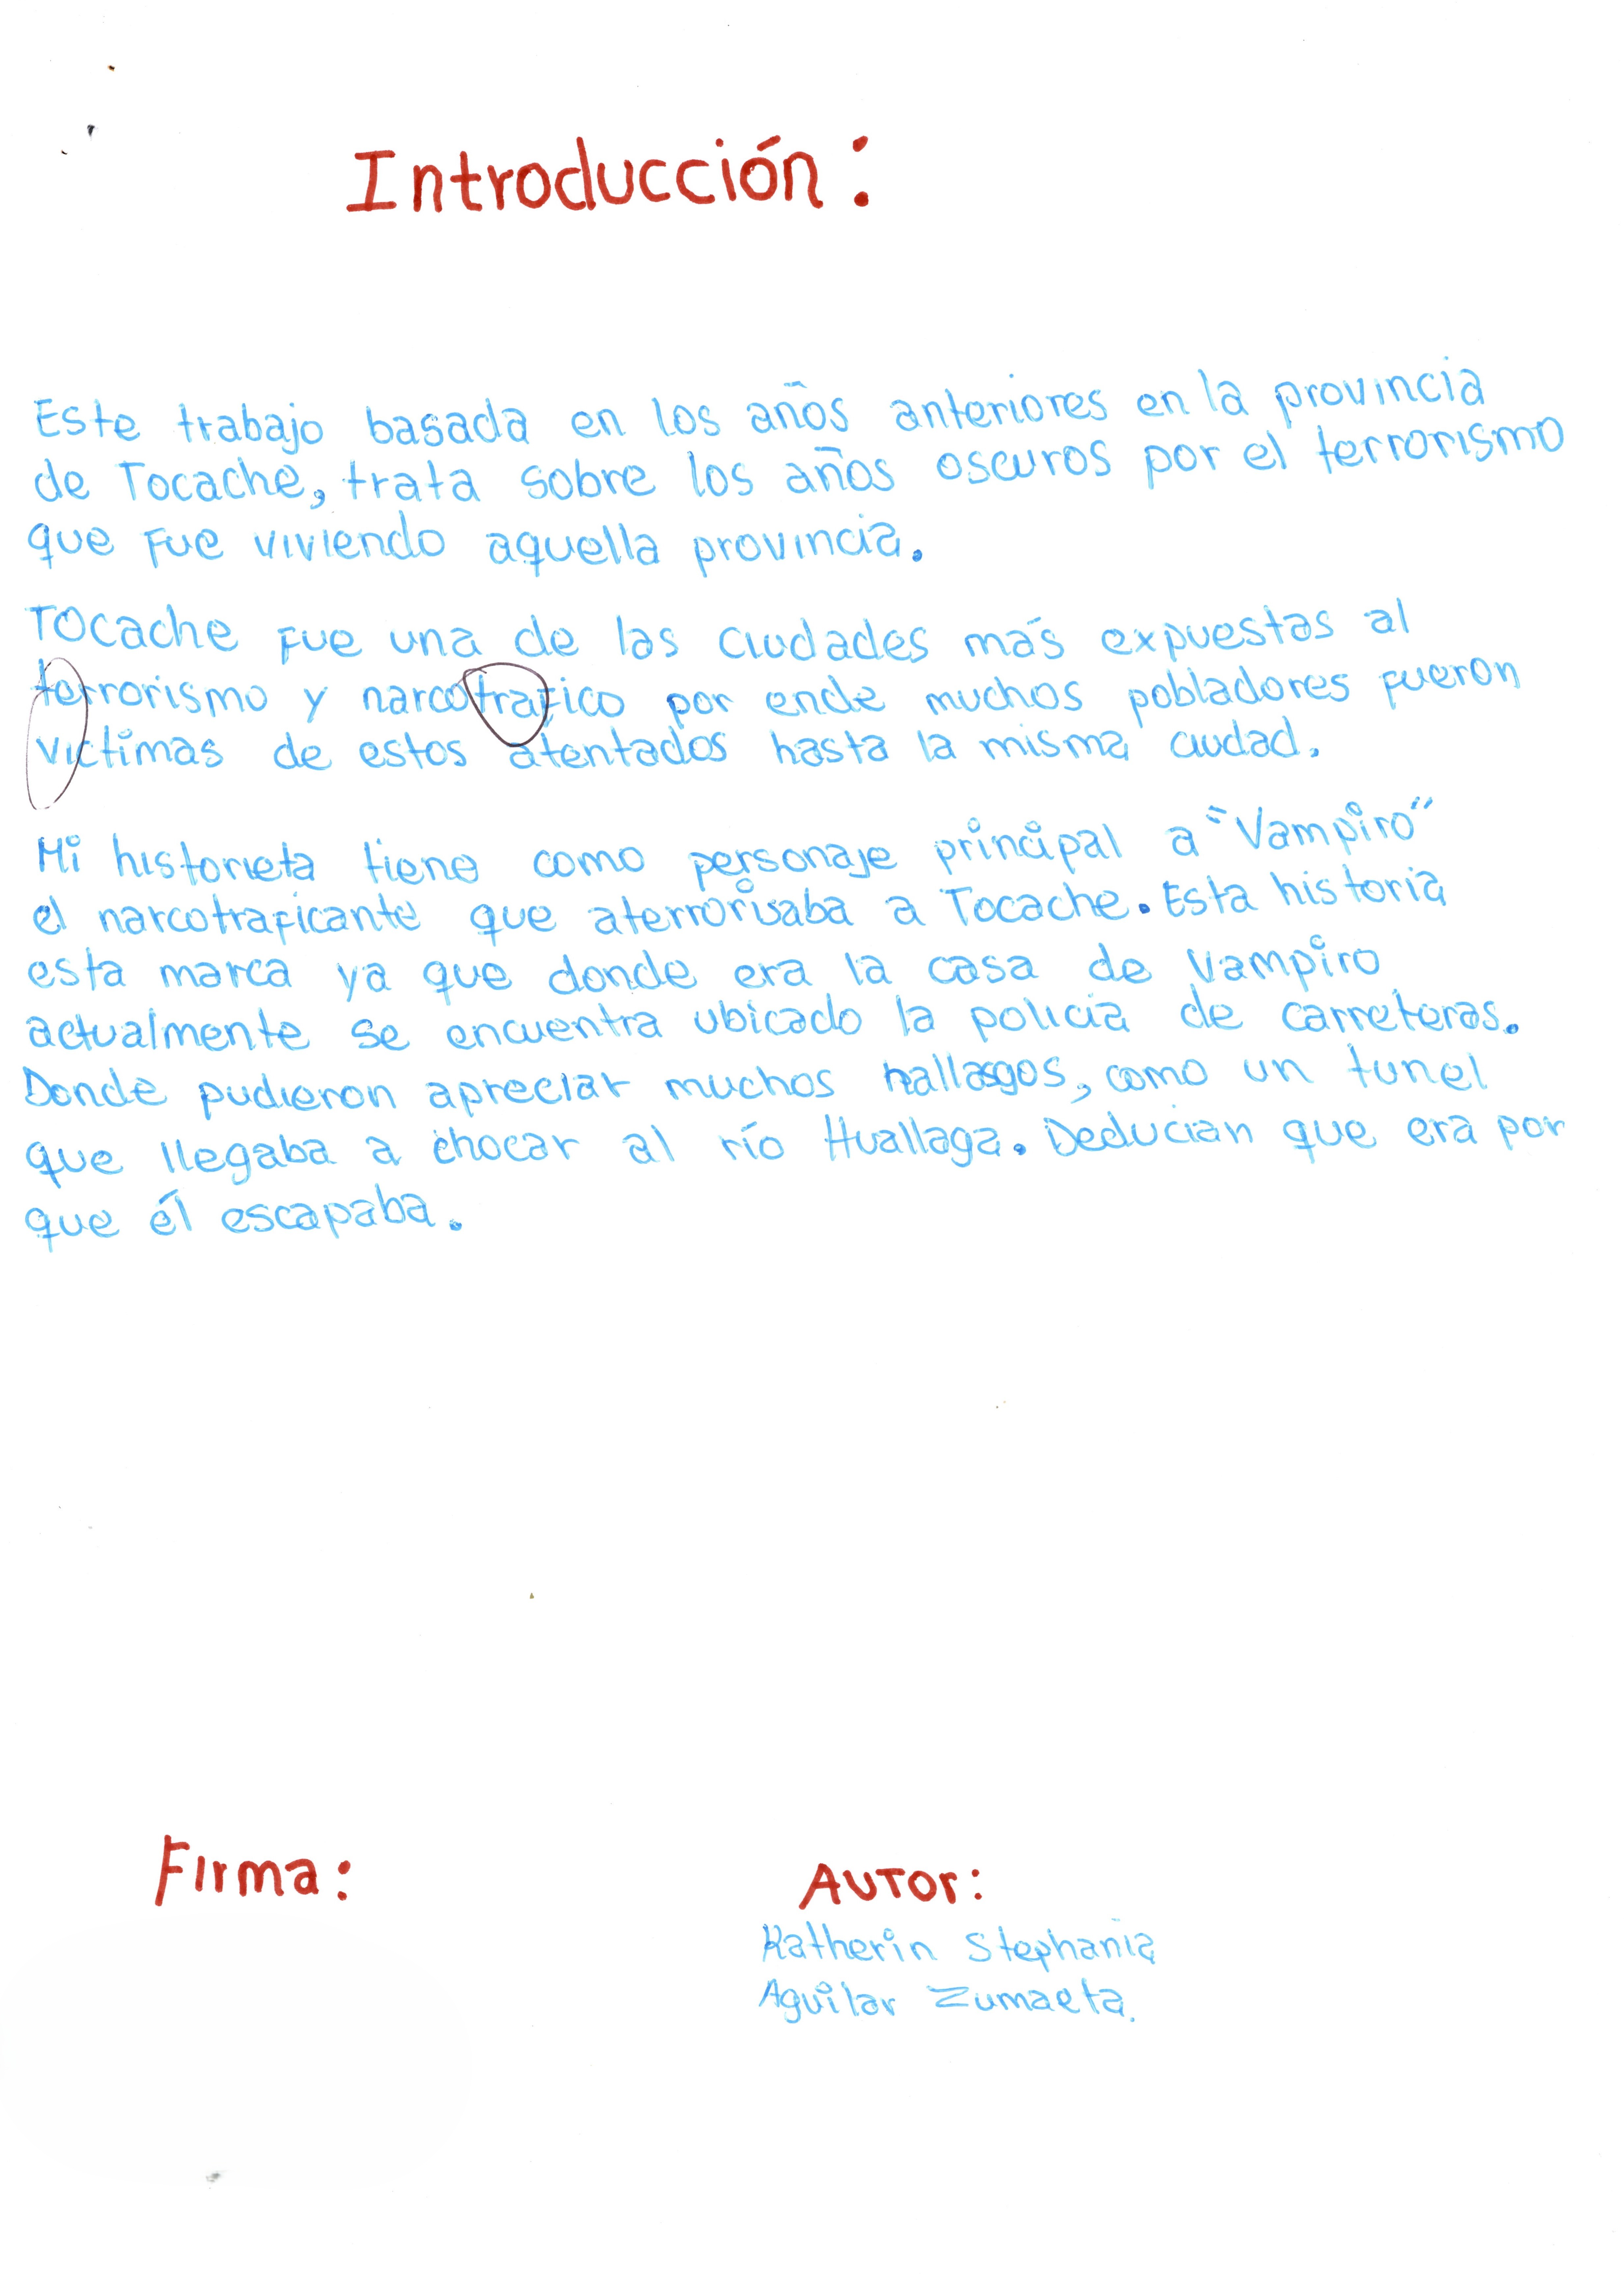 Introducción:
Este trabajo basada en los años anteriores en la provincia
de Tocache, trata sobre los años oscuros por el terrorismo
que fue viviendo aquella provincia.
Tocache fue una de las ciudades más expuestas al
terrorismo y narcotrafico por ende muchos pobladores fueron
victimas de estos atentados hasta la misma ciudad.
Mi historieta tiene como personaje principal a "Vampiro"
el narcotraficante que aterrorisaba a Tocache. Esta historia
esta marca ya que donde era la casa de Vampiro
actualmente se encuentra ubicado la policia de carreteras.
Donde pudieron apreciar muchos hallasgos, como un tunel
que llegaba a chocar al río Huallaga. Deducian que era por
que él escapaba.
Firma:
Autor:
Katherin Stephania
Aguilar Zumaeta.